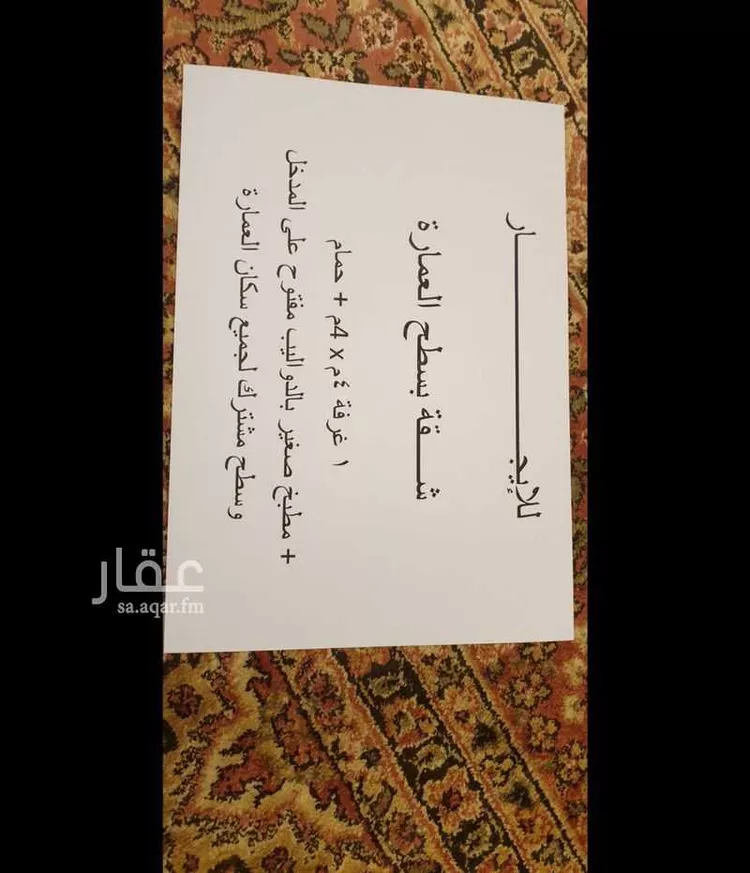 للإيجـــــــــــار
شـــقة بسطح العمارة
١ غرفة ٤م x 4م + حمام
+ مطبخ صغير بالدواليب مفتوح على المدخل
وسطح مشترك لجميع سكان العمارة
عقار
sa.aqar.fm